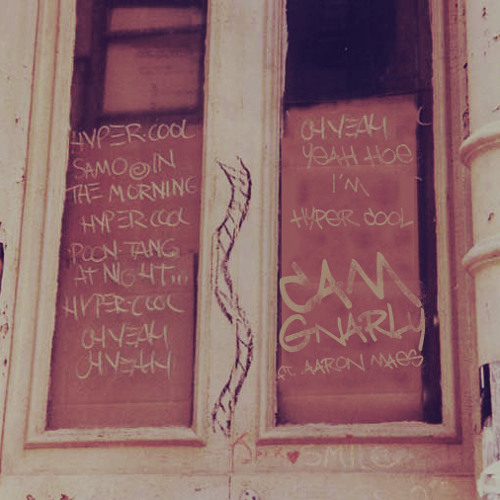 HYPER-COOL
SAMO© IN
THE MORNING
HYPER COOL
POON-TANG
AT NIGHT...
HYPER-COOL
OH YEAH
OH YEAH
OH YEAH
YEAH HOE
I'M
HYPER COOL
CAM
GNARLY
ft. AARON MAES
SMILE